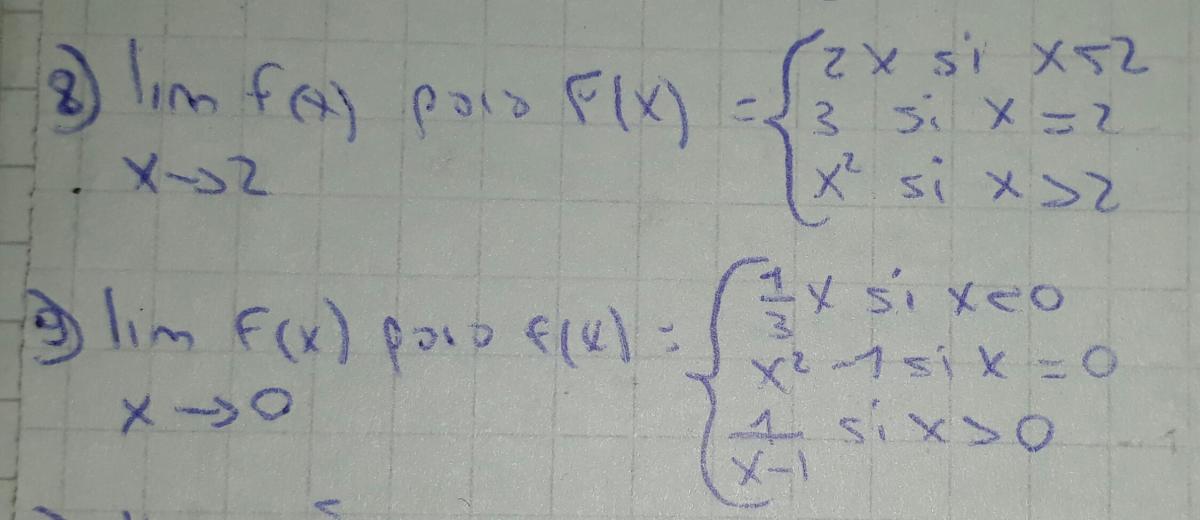 8) lim f(x) para F(x) = { 2x si x<2
3 si x = 2
x→2 x² si x > 2
9) lim F(x) para f(x) = { 1/3 x si x<0
x² -1 si x = 0
x → 0 1/x-1 si x > 0